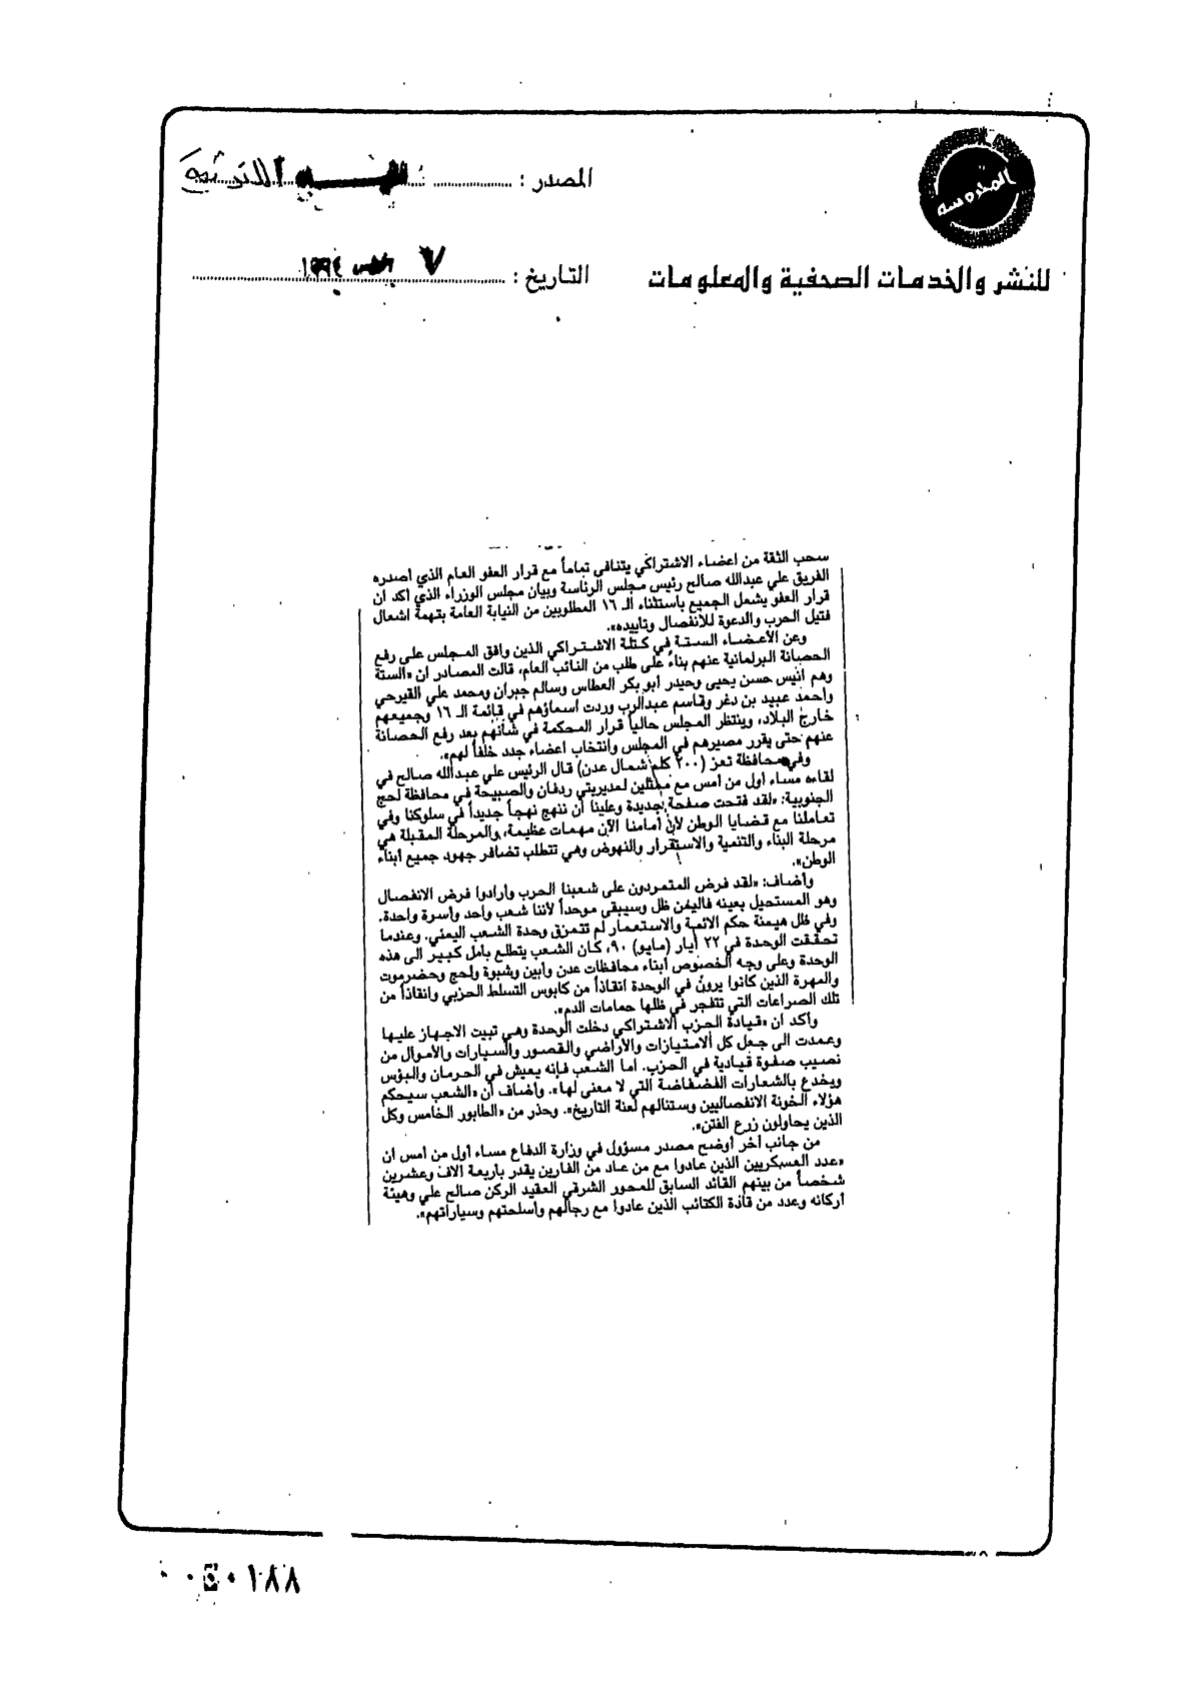 المحروسة
المصدر :
للنشر والخدمات الصحفية والمعلومات
التاريخ : ٧ ١٩٩٤
سحب الثقة من اعضاء الاشتراكي يتنافى تماماً مع قرار العفو العام الذي اصدره
الفريق علي عبدالله صالح رئيس مجلس الرئاسة وبيان مجلس الوزراء الذي اكد ان
قرار العفو يشمل الجميع باستثناء الـ ١٦ المطلوبين من النيابة العامة بتهمة اشعال
فتيل الحرب والدعوة للانفصال وتأييده».
وعن الأعضاء الستة في كتلة الاشتراكي الذين وافق المجلس على رفع
الحصانة البرلمانية عنهم بناءً على طلب من النائب العام، قالت المصادر ان «الستة
وهم انيس حسن يحيى وحيدر أبو بكر العطاس وسالم جبران ومحمد علي القيرحي
واحمد عبيد بن دغر وقاسم عبدالرب وردت اسماؤهم في قائمة الـ ١٦ وجميعهم
خارج البلاد، وينتظر المجلس حالياً قرار المحكمة في شأنهم بعد رفع الحصانة
عنهم حتى يقرر مصيرهم في المجلس وانتخاب اعضاء جدد خلفاً لهم».
وفي محافظة تعز (٢٠٠ كلم شمال عدن) قال الرئيس علي عبدالله صالح في
لقاءه مساء اول من امس مع ممثلين لمديريتي ردفان والصبيحة في محافظة لحج
الجنوبية: «لقد فتحت صفحة جديدة وعلينا أن ننهج نهجاً جديداً في سلوكنا وفي
تعاملنا مع قضايا الوطن لأن أمامنا الآن مهمات عظيمة، والمرحلة المقبلة هي
مرحلة البناء والتنمية والاستقرار والنهوض وهي تتطلب تضافر جهود جميع أبناء
الوطن».
وأضاف: «لقد فرض المتمردون على شعبنا الحرب وارادوا فرض الانفصال
وهو المستحيل بعينه فاليمن ظل وسيبقى موحداً لأننا شعب واحد وأسرة واحدة.
وفي ظل هيمنة حكم الائمة والاستعمار لم تتمزق وحدة الشعب اليمني. وعندما
تحققت الوحدة في ٢٢ أيار (مايو) ٩٠، كان الشعب يتطلع بأمل كبير الى هذه
الوحدة وعلى وجه الخصوص أبناء محافظات عدن وأبين وشبوة ولحج وحضرموت
والمهرة الذين كانوا يرون في الوحدة انقاذاً من كابوس التسلط الحزبي وانقاذاً من
تلك الصراعات التي تتفجر في ظلها حمامات الدم».
وأكد ان «قيادة الحزب الاشتراكي دخلت الوحدة وهي تبيت الاجهاز عليها
وعمدت الى جعل كل الامتيازات والأراضي والقصور والسيارات والأموال من
نصيب صفوة قيادية في الحزب. اما الشعب فإنه يعيش في الحرمان والبؤس
ويخدع بالشعارات الفضفاضة التي لا معنى لها». وأضاف أن «الشعب سيحكم
هؤلاء الخونة الانفصاليين وستنالهم لعنة التاريخ». وحذر من «الطابور الخامس وكل
الذين يحاولون زرع الفتن».
من جانب آخر أوضح مصدر مسؤول في وزارة الدفاع مساء أول من أمس ان
«عدد العسكريين الذين عادوا مع من عاد من الفارين يقدر بأربعة الاف وعشرين
شخصاً من بينهم القائد السابق للمحور الشرقي العقيد الركن صالح علي وهيئة
أركانه وعدد من قادة الكتائب الذين عادوا مع رجالهم وأسلحتهم وسياراتهم».
١٨٨